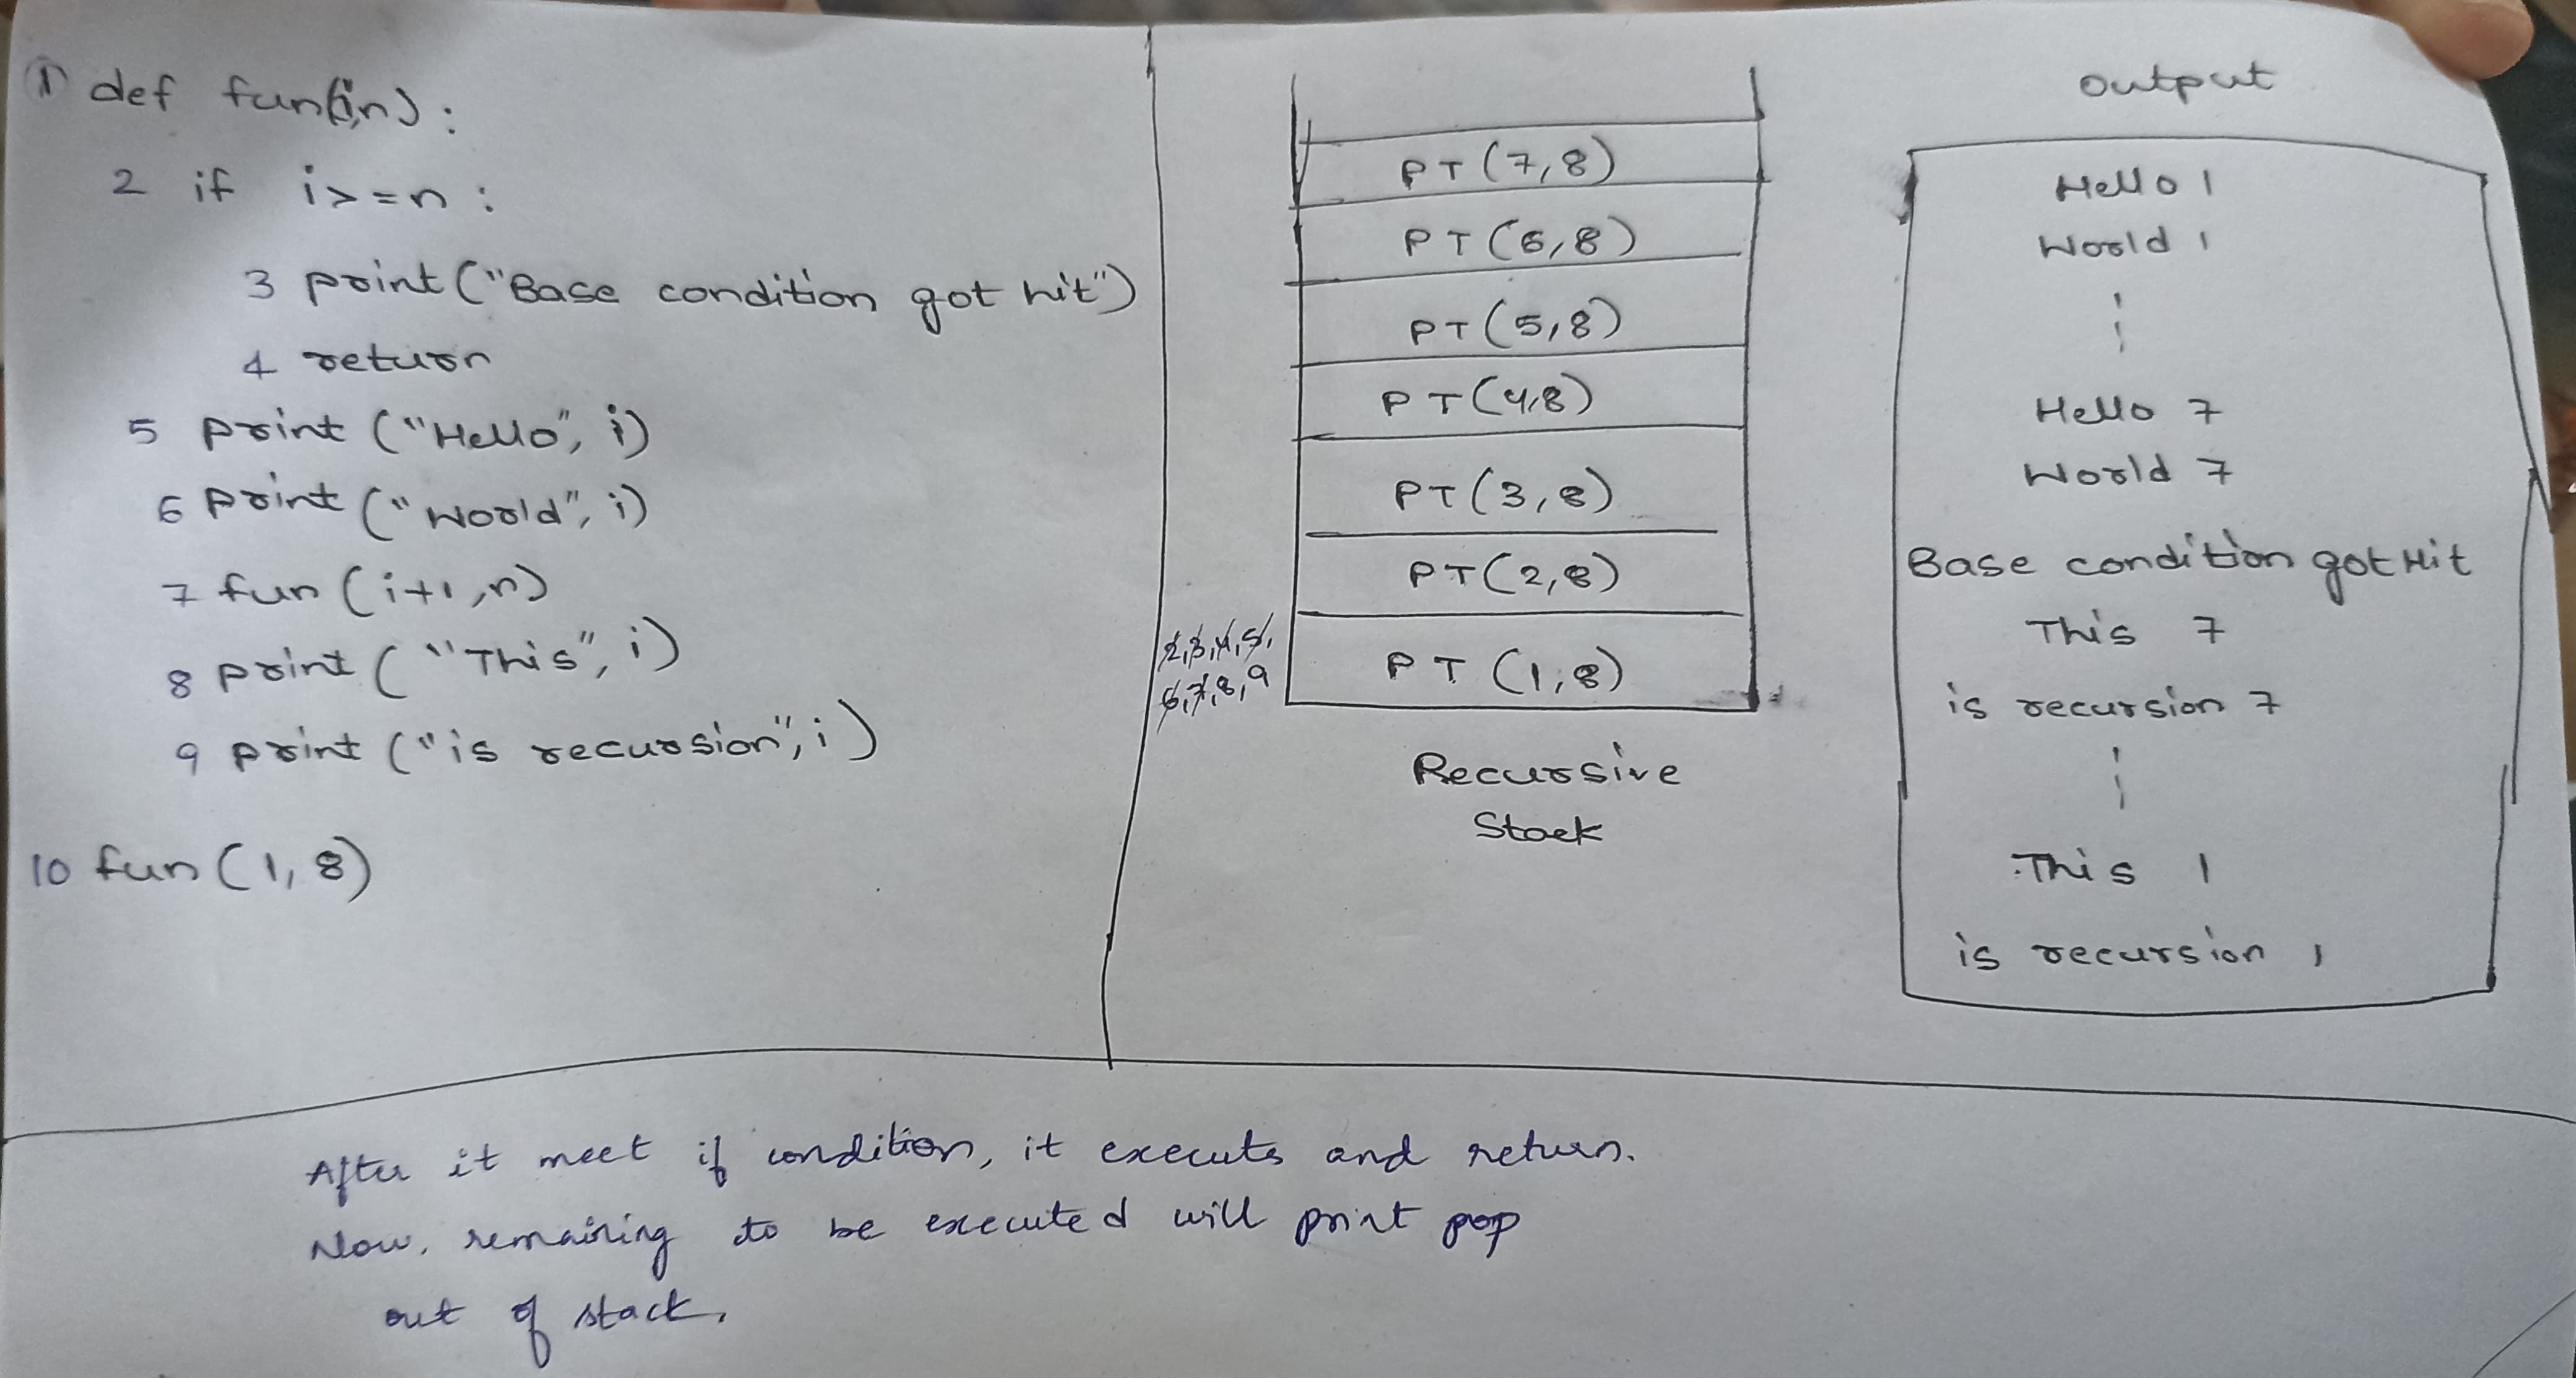 ① def fun(i,n):
2 if i>=n :
3 print ("Base condition got hit")
4 return
5 print ("Hello", i)
6 print ("World", i)
7 fun (i+1,n)
8 print ("This", i)
9 print ("is recursion", i)
10 fun (1, 8)
PT (7,8)
PT (6,8)
PT (5,8)
PT (4,8)
PT (3,8)
PT (2,8)
2,3,4,5,
6,7,8,9
PT (1,8)
Recursive
Stack
output
Hello 1
World 1
Hello 7
World 7
Base condition got Hit
This 7
is recursion 7
This 1
is recursion 1
After it meet if condition, it executs and return.
Now, remaining to be executed will print pop
out of stack.